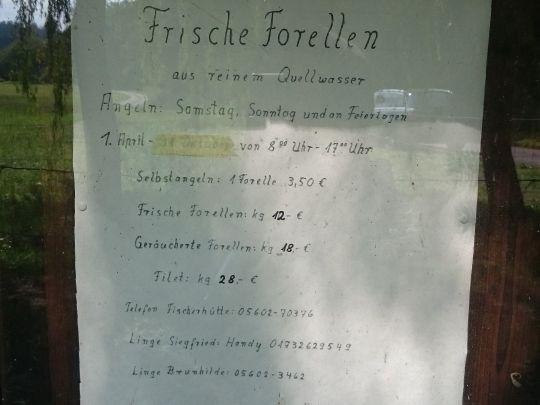 Frische Forellen
aus reinem Quellwasser
Angeln: Samstag, Sonntag und an Feiertagen
1. April - 31 Oktober von 8⁰⁰ Uhr - 17⁰⁰ Uhr
Selbstangeln: 1 Forelle 3,50 €
Frische Forellen: kg 12,- €
Geräucherte Forellen: kg 18,- €
Filet: kg 28,- €
Telefon Fischerhütte: 05602-70376
Linge Siegfried: Handy 01732629549
Linge Brunhilde: 05602-3462